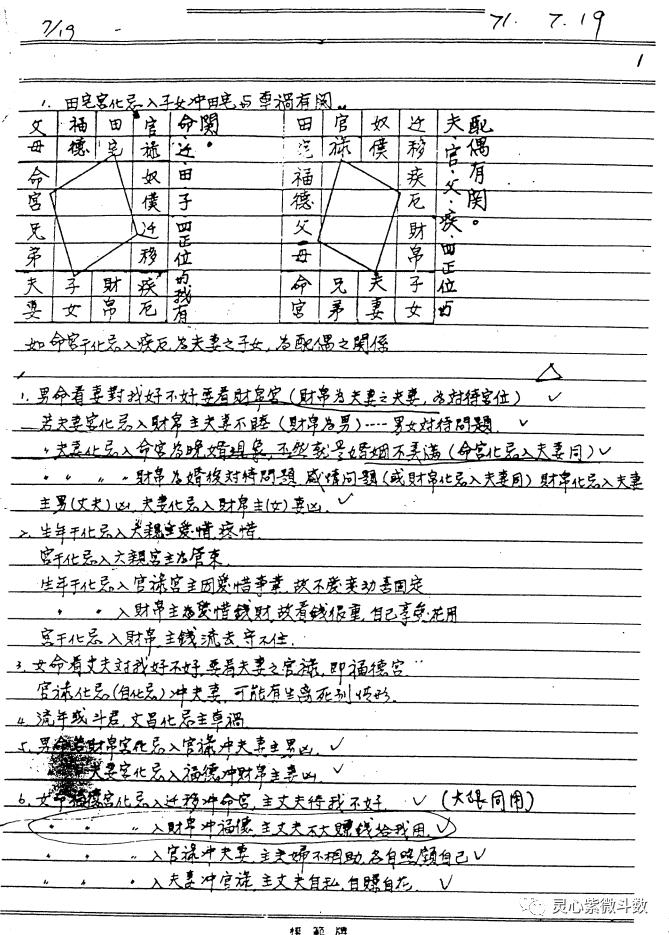 7/19
71. 7. 19
1
1. 田宅宮化忌入子女冲田宅与車禍有関。
父母 福德 田宅 官禄
命宮 奴僕
兄弟 迁移
夫妻 子女 財帛 疾厄
命、迁、田、子、四正位与我有関。
田宅 官禄 奴僕 迁移
福德 疾厄
父母 財帛
命宮 兄弟 夫妻 子女
夫、官、父、疾、四正位与配偶有関。
如命宮干化忌入疾厄為夫妻之子女,為配偶之関係
1. 男命看妻對我好不好要看財帛宮(財帛為夫妻之夫妻,為対待宮位) ✓
若夫妻宮化忌入財帛主夫妻不睦(財帛為男)----男女対待問題. ✓
〃夫妻化忌入命宮為晚婚現象,不然就是婚姻不美滿(命宮化忌入夫妻同) ✓
〃 〃 〃 〃 財帛為婚後対待問題 感情問題(或財帛化忌入夫妻同) 財帛化忌入夫妻
主男(丈夫)凶,夫妻化忌入財帛主(女)妻凶. ✓
2. 生年干化忌入六親主愛惜,疼惜.
宮干化忌入六親宮主為管束.
生年干化忌入官禄宮主因愛惜事業,故不愛変動善固定
〃 〃 入財帛主為愛惜錢財,故看錢很重,自己享受花用
宮干化忌入財帛主錢流去守不住.
3. 女命看丈夫対我好不好,要看夫妻之官禄,即福德宮.
官禄化忌(自化忌)冲夫妻,可能有生离死別情形.
4. 流年或斗君,文昌化忌主車禍
5. 男命若財帛宮化忌入官禄冲夫妻主男凶. ✓
夫妻宮化忌入福德冲財帛主妻凶. ✓
6. 女命福德宮化忌入迁移冲命宮,主丈夫待我不好. ✓ (大限同用)
〃 〃 〃 入財帛冲福德,主丈夫不太賺錢給我用. ✓
〃 〃 〃 入官禄冲夫妻,主夫婦不相助,各自照顧自己 ✓
〃 〃 〃 入夫妻冲官禄,主丈夫自私,自賺自花. ✓
灵心紫微斗数
模範牌